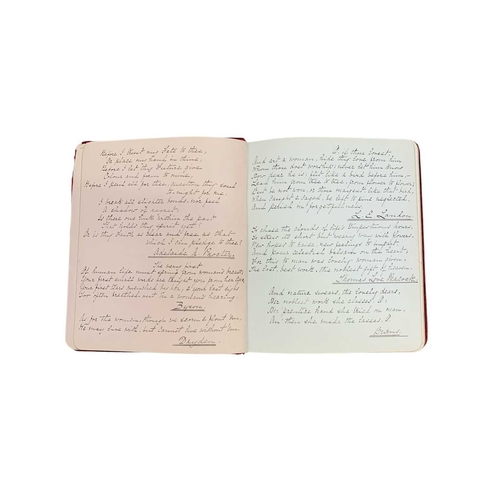 Before I trust my Fate to thee,
Or place my hand in thine,
Before I let thy Future give
Colour and form to mine,
Before I peril all for thee, question thy soul
to night for me
I break all slighter bonds, nor feel
A shadow of regret:
Is there one link within the Past
That holds thy spirit yet?
Or is thy Faith as clear and free as that
which I can pledge to thee?
Adelaide A. Procter
The very first
Of human life must spring from woman's breast,
Your first small words are taught you from her lips,
Your first tears quench'd by her, & your last sighs
Too often breathed out in a woman's hearing.
Byron
As for the women, though we scorn & flout 'em,
We may live with, but cannot live without 'em.
Dryden
If thou lovest,
And art a woman, hide thy love from him
Whom thou dost worship; never let him know
How dear he is; flit like a bird before him,
Lead him from tree to tree, from flower to flower;
But be not won, or thou wilt, like that bird,
When caught & caged, be left to pine neglected,
And perish in forgetfulness.
L. E. Landon
To chase the clouds of life's tempestuous hours,
To strew its short but weary way with flowers,
New hopes to raise, new feelings to impart,
And pour celestial balsam on the heart;
For this to man was lovely woman given,
The last, best work, the noblest gift of Heaven.
Thomas Love Peacock
Auld nature swears, the lovely dears
Her noblest work she classes, O
Her prentice hand she tried on man,
An' then she made the lasses, O
Burns